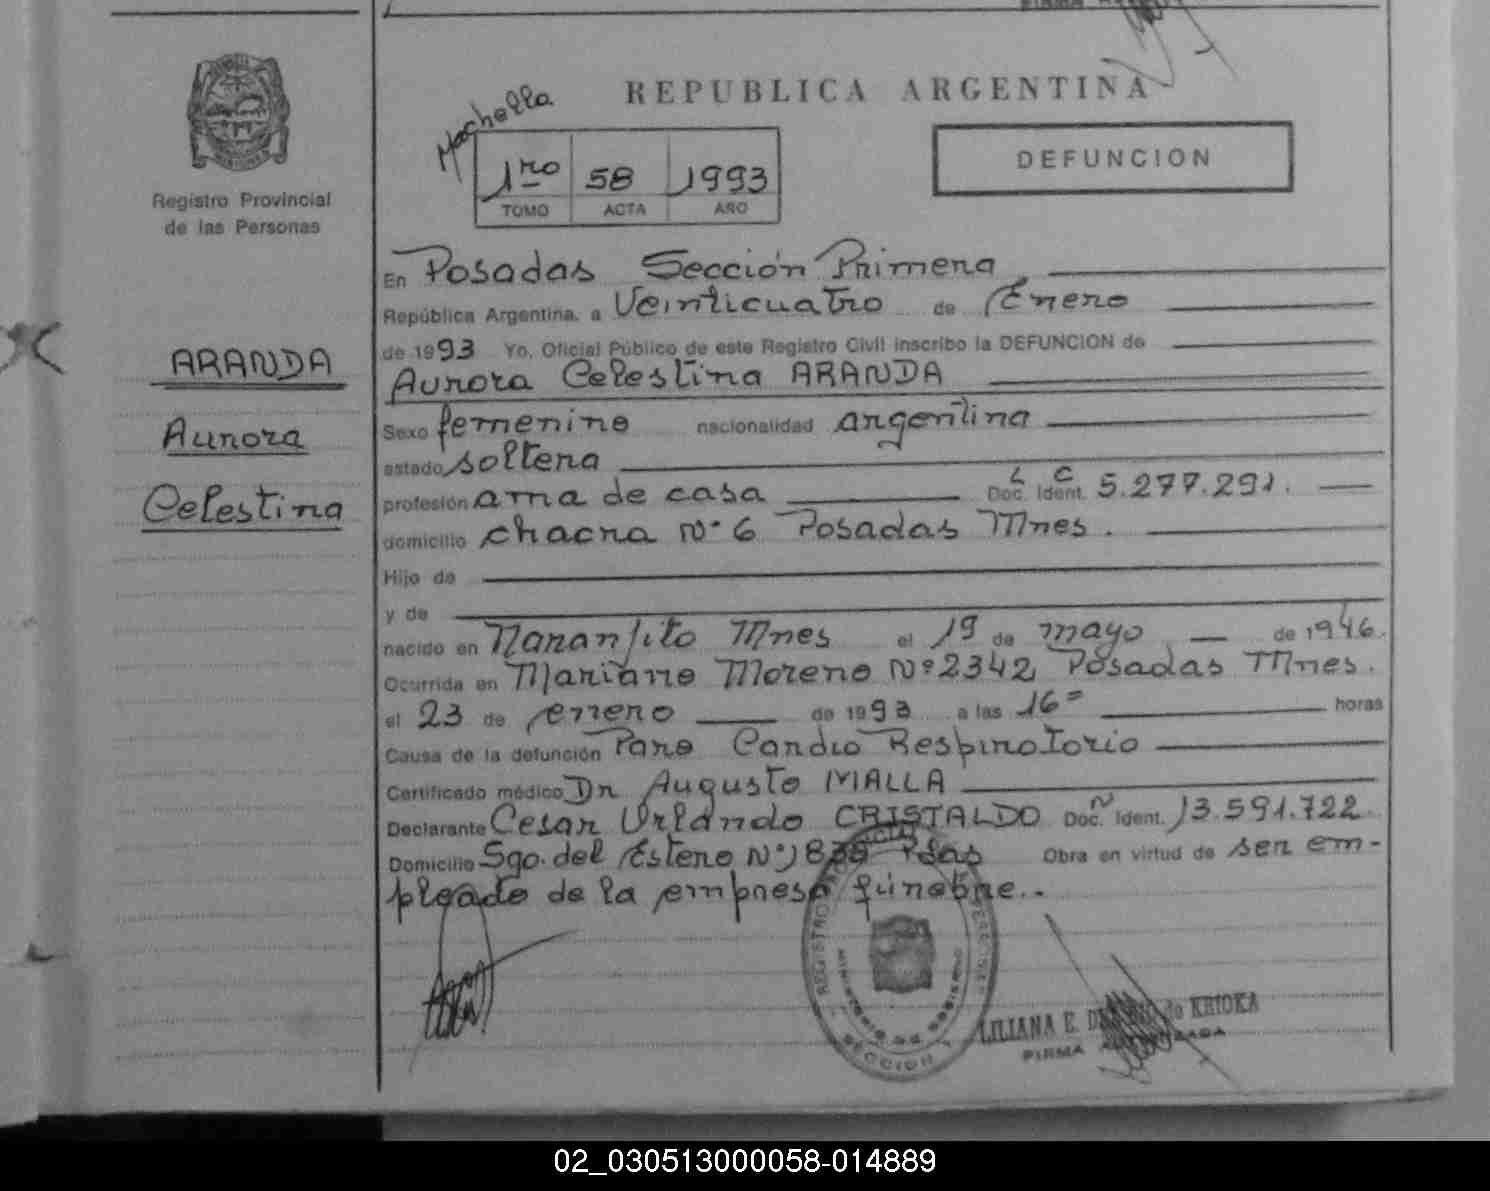 REPUBLICA ARGENTINA
Machella
1ro 58 1993
TOMO ACTA AÑO
DEFUNCION
Registro Provincial
de las Personas
ARANDA
Aurora
Celestina
En Posadas Sección Primera
República Argentina, a Veinticuatro de Enero
de 1993 Yo, Oficial Público de este Registro Civil inscribo la DEFUNCION de
Aurora Celestina ARANDA
Sexo femenino nacionalidad argentina
estado soltera
profesión ama de casa L C Doc. Ident. 5.277.291.
domicilio chacra Nº 6 Posadas Mnes.
Hijo de
y de
nacido en Naranjito Mnes el 19 de mayo de 1946.
Ocurrida en Mariano Moreno Nº 2342 Posadas Mnes.
el 23 de enero de 1993 a las 16= horas
Causa de la defunción Paro Cardio Respiratorio
Certificado médico Dr Augusto MALLA
Declarante Cesar Orlando CRISTALDO Doc. N Ident. 13.591.722.
Domicilio Sgo. del Estero Nº Psas Obra en virtud de ser em-
pleado de la empresa fúnebre..
SECCION 1
LILIANA E. de KRIOKA
FIRMA
02_030513000058-014889